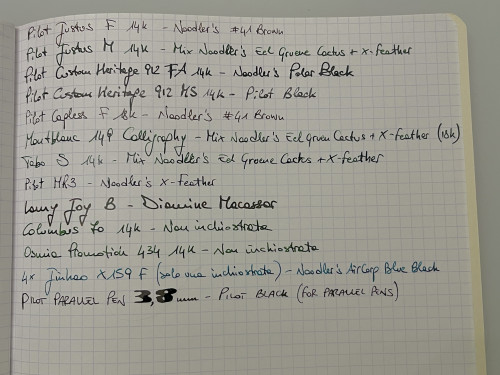 Pilot Justus F 14k - Noodler's #41 Brown
Pilot Justus M 14k - Mix Noodler's Eel Gruene Cactus + X-feather
Pilot Custom Heritage 912 FA 14k - Noodler's Polar Black
Pilot Custom Heritage 912 MS 14k - Pilot Black
Pilot Capless F 18k - Noodler's #41 Brown
Montblanc 149 Calligraphy - Mix Noodler's Eel Gruen Cactus + X-feather (18k)
S 14k - Mix Noodler's Eel Gruene Cactus + X-feather
Pilot MR3 - Noodler's X-feather
Lamy Joy B - Diamine Macassar
Columbus 70 14k - Non inchiostrata
Osmia Promotion 434 14k - Non inchiostrata
4x Jinhao X159 F (solo una inchiostrata) - Noodler's AirCorp Blue Black
PILOT PARALLEL PEN 3,8 mm - PILOT BLACK (FOR PARALLEL PENS)